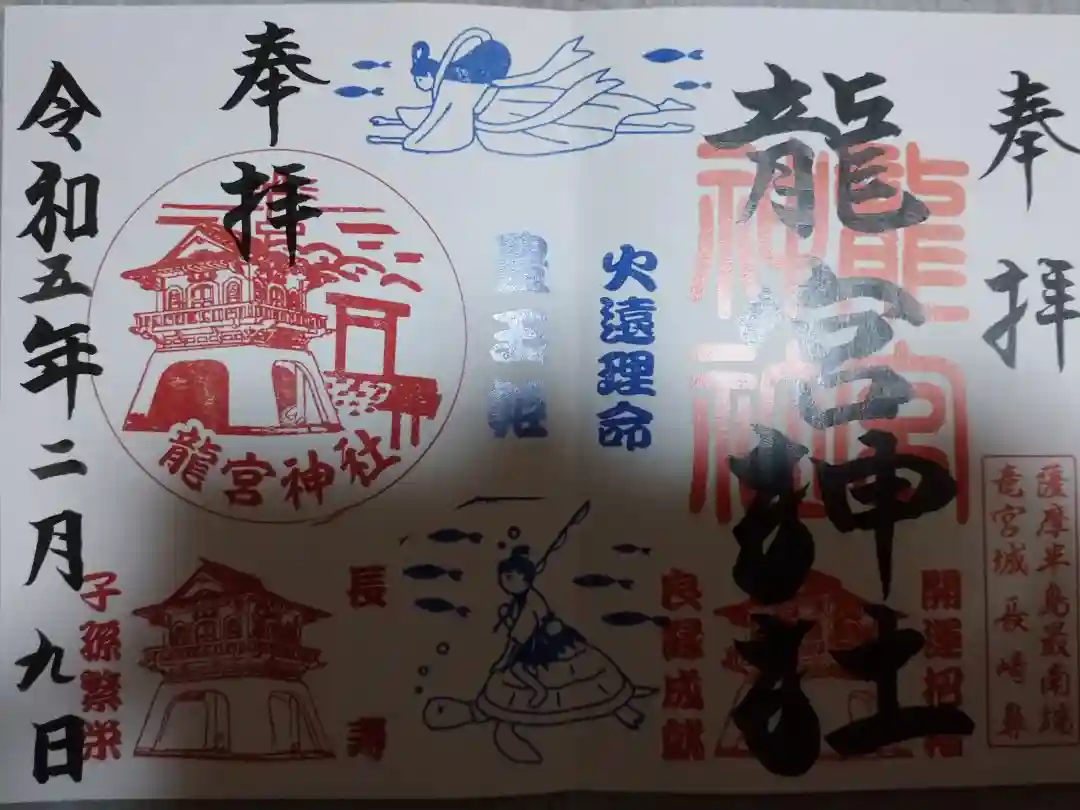 奉拝
龍宮神社
龍宮神社
薩摩半島最南端
竜宮城長崎鼻
開運招福
良縁成就
火遠理命
豊玉姫
奉拝
龍宮神社
長寿
子孫繁栄
令和五年二月九日